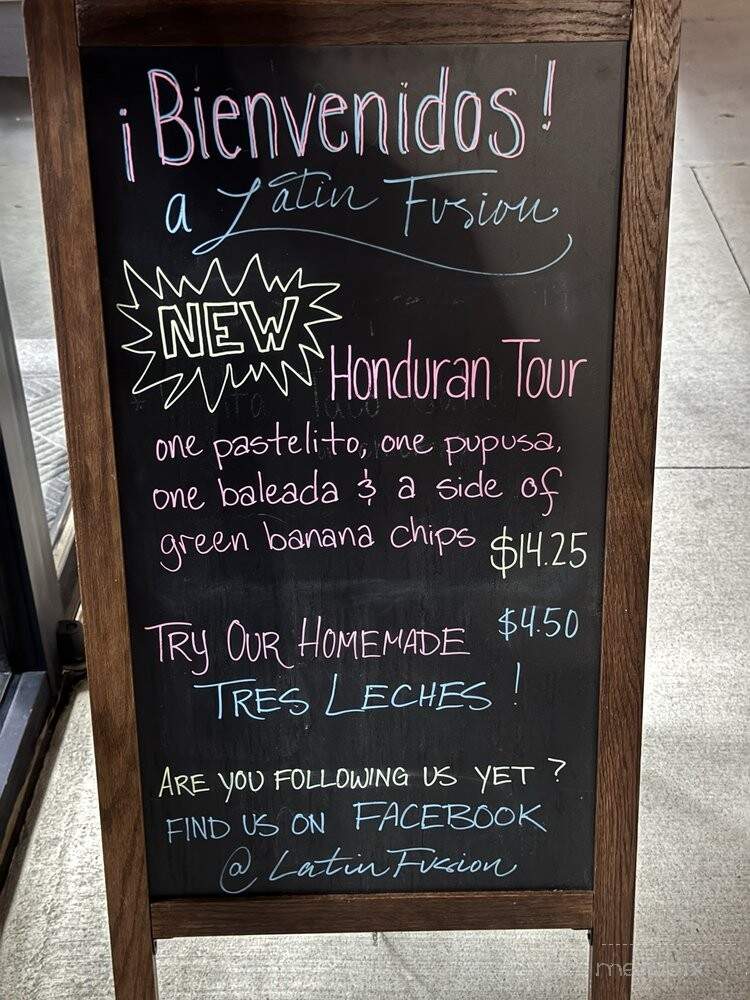 ¡Bienvenidos!
a Latin Fusion
NEW
Honduran Tour
one pastelito, one pupusa,
one baleada & a side of
green banana chips $14.25
TRY OUR HOMEMADE $4.50
TRES LECHES!
ARE YOU FOLLOWING US YET?
FIND US ON FACEBOOK
@ Latin Fusion